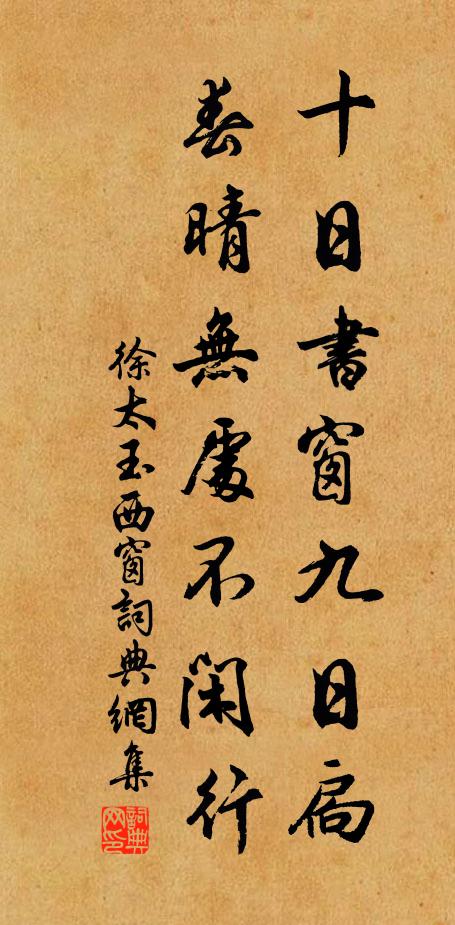 十日書窗九日扃
春晴無處不閑行
徐太玉西窗詞典網集
詞典网印